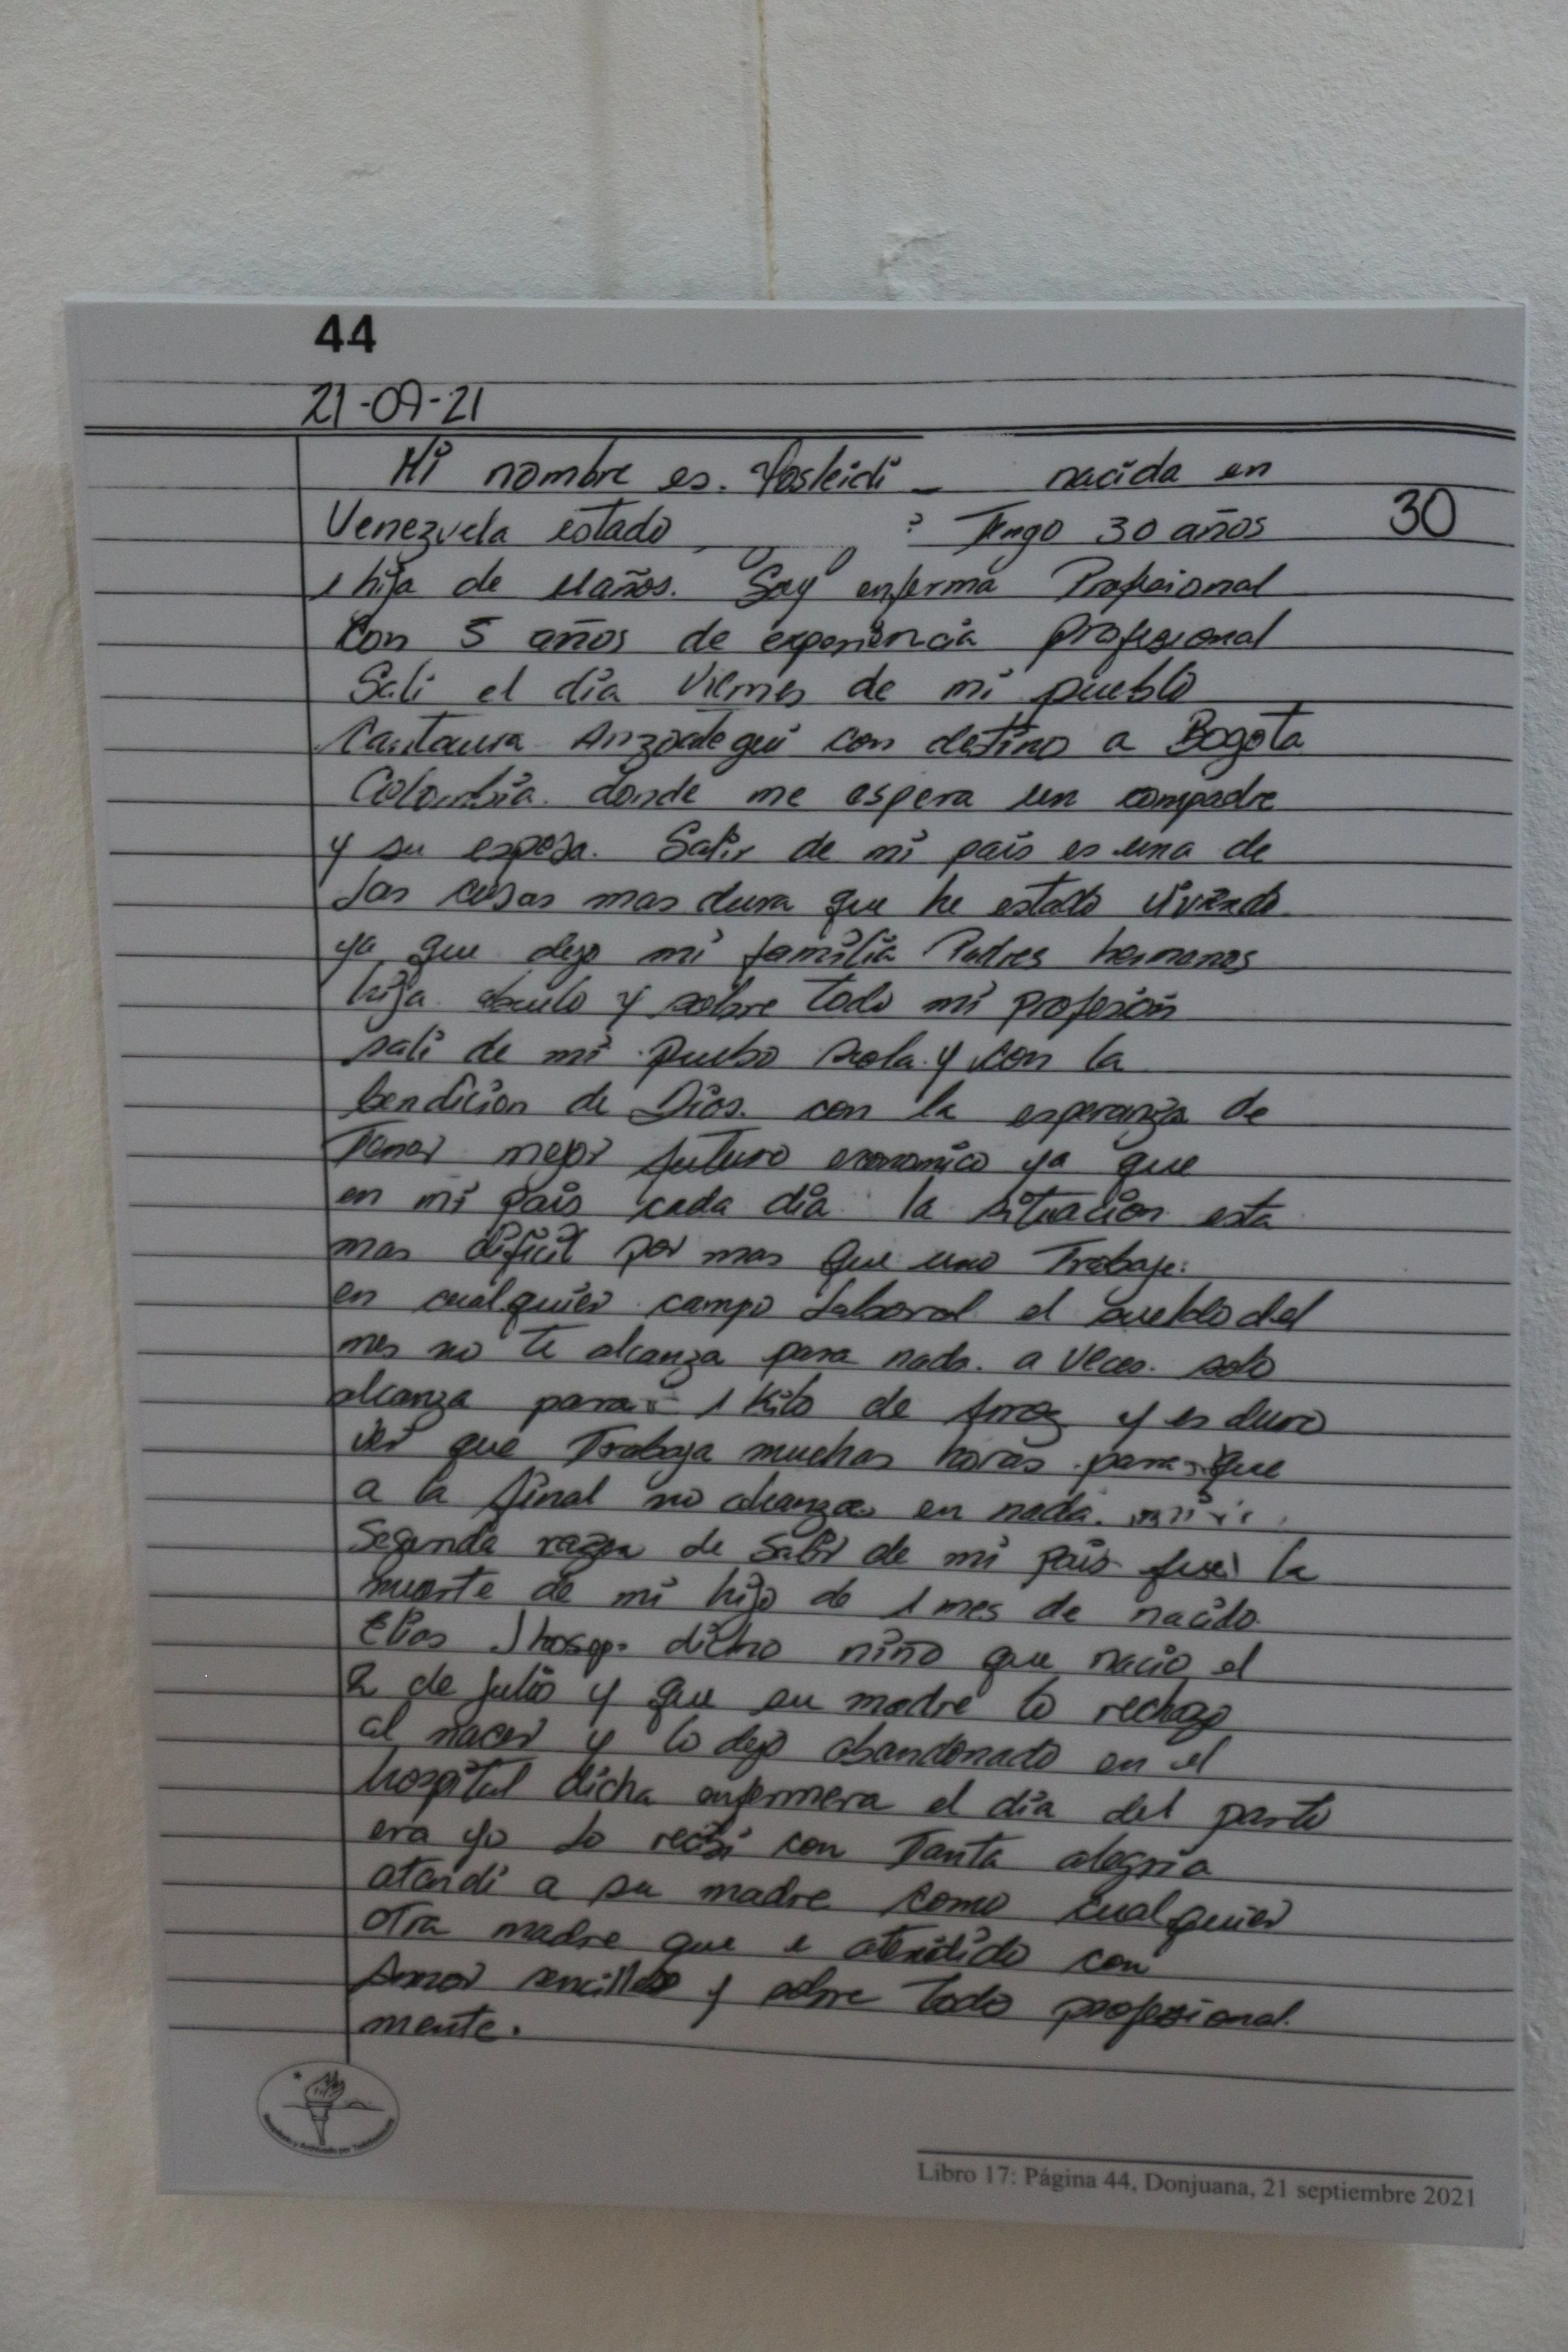 44
21-09-21
Mi nombre es. Yosleidi nacida en
Venezuela estado : Tengo 30 años 30
1 hija de 11 años. Soy enferma Profesional
Con 5 años de experiencia profesional
Sali el dia Viernes de mi pueblo
Cantaura Anzoategui con destino a Bogota
Colombia. donde me espera un compadre
y su esposa. Salir de mi pais es una de
las cosas mas dura que he estado viviendo
ya que dejo mi familia Padres hermanos
hija abuelo y sobre todo mi profesion
sali de mi puebo sola y con la
bendicion de Dios. con la esperanza de
Tener mejor futuro economico ya que
en mi pais cada dia la situacion esta
mas dificil por mas que uno Trabaje.
en cualquier campo laboral el sueldo del
mes no te alcanza para nada. a veces. solo
alcanza para 1 Kilo de Arroz y es duro
ver que Trabaja muchas horas para que
a la final no alcanza en nada.
Segunda razon de Salir de mi pais fue la
muerte de mi hijo de 1 mes de nacido
Elias Jhosep. dicho niño que nacio el
2 de julio y que su madre lo rechazo
al nacer y lo dejo abandonado en el
hospital dicha enfermera el dia del parto
era yo lo recibi con Tanta alegria
atendi a su madre como cualquier
otra madre que e atendido con
Amor sencilles y sobre todo profesional
mente.
Libro 17: Página 44, Donjuana, 21 septiembre 2021